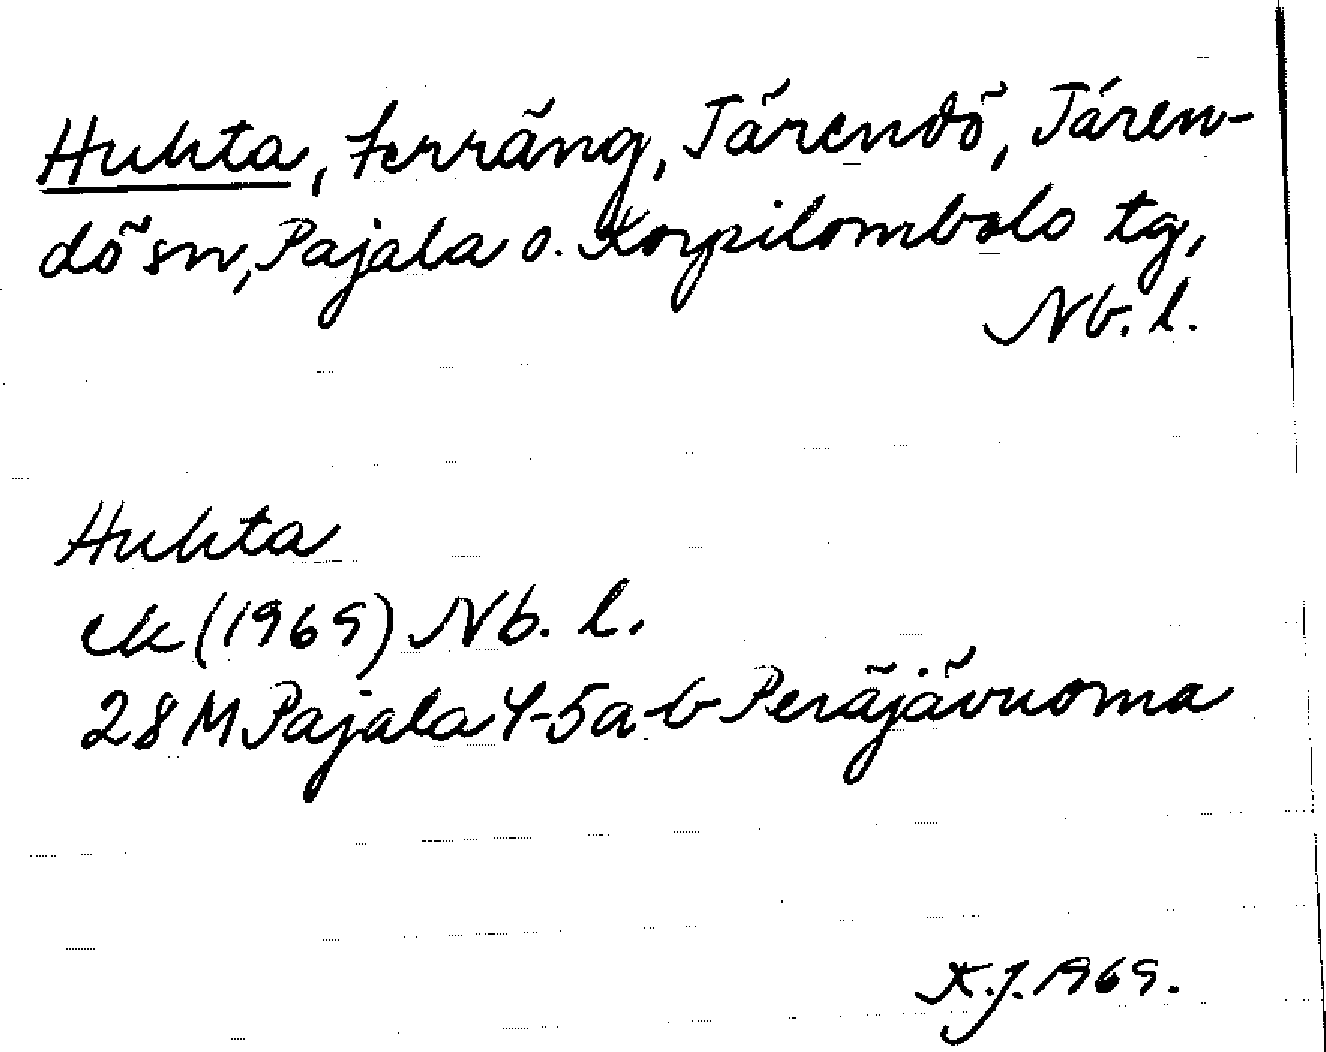 Huhta, terräng, Tärendö, Tären-
dö sn, Pajala o. Korpilombolo tg,
Nb. l.
Huhta
ek (1969) Nb. l.
28 M Pajala 4-5a-b Peräjävuoma
K.J. 1969.